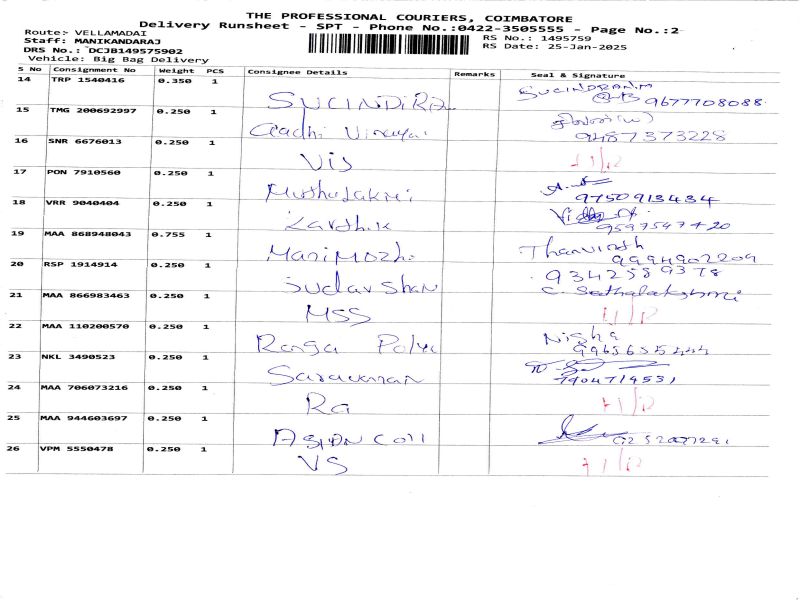 THE PROFESSIONAL COURIERS, COIMBATORE
Delivery Runsheet - SPT - Phone No.:0422-3505555 - Page No.:2
Route:- VELLAMADAI
Staff: MANIKANDARAJ
RS No.: 1495759
DRS No.: DCJB149575902
RS Date: 25-Jan-2025
Vehicle: Big Bag Delivery
S No Consignment No Weight PCS Consignee Details Remarks Seal & Signature
14 TRP 1540416 0.350 1 SUCINDIRA SUCINDRAN.M 9677708088
15 TMG 200692997 0.250 1 Aadhi Vinayai 9487373228
16 SNR 6676013 0.250 1 Vis
17 PON 7910560 0.250 1 Muthulakmi 9750913434
18 VRR 9040404 0.250 1 Karthik 9597597420
19 MAA 868948043 0.755 1 Manimozhi 9994902209
20 RSP 1914914 0.250 1 Sudarshan 9342589378
21 MAA 866983463 0.250 1 MSS
22 MAA 110200570 0.250 1 Ranga Nisha
23 NKL 3490523 0.250 1 Saravanan 7904719531
24 MAA 706073216 0.250 1 Ra
25 MAA 944603697 0.250 1 ASIAN
26 VPM 5550478 0.250 1 VS